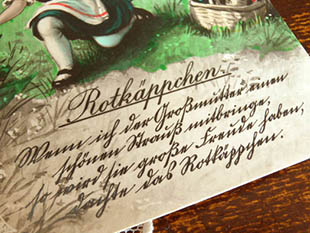 Rotkäppchen.
Wenn ich der Großmutter einen
schönen Strauß mitbringe,
so wird sie große Freude haben,
dachte das Rotkäppchen.